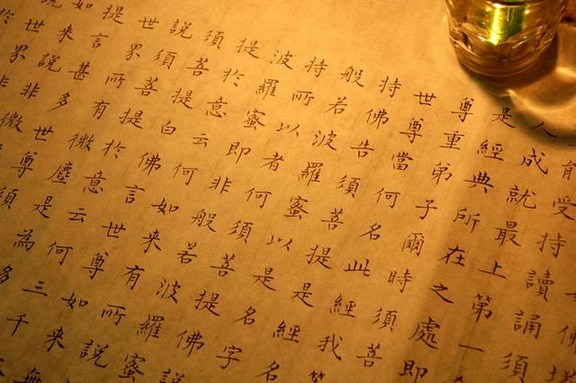 受持讀誦須
人成就最上第一
是經典所在之處即
尊重弟子爾時須菩
世尊當何名此經我等
持佛告須菩提是經名
般若波羅蜜以是名字
持所以者何須菩提佛
波羅蜜即非般若波羅蜜
提於意云何如來有所說
須菩提白佛言世尊如來
說須菩提於意云何三千
世界所有微塵是為多
提言甚多世尊須
如來說非微
世界非